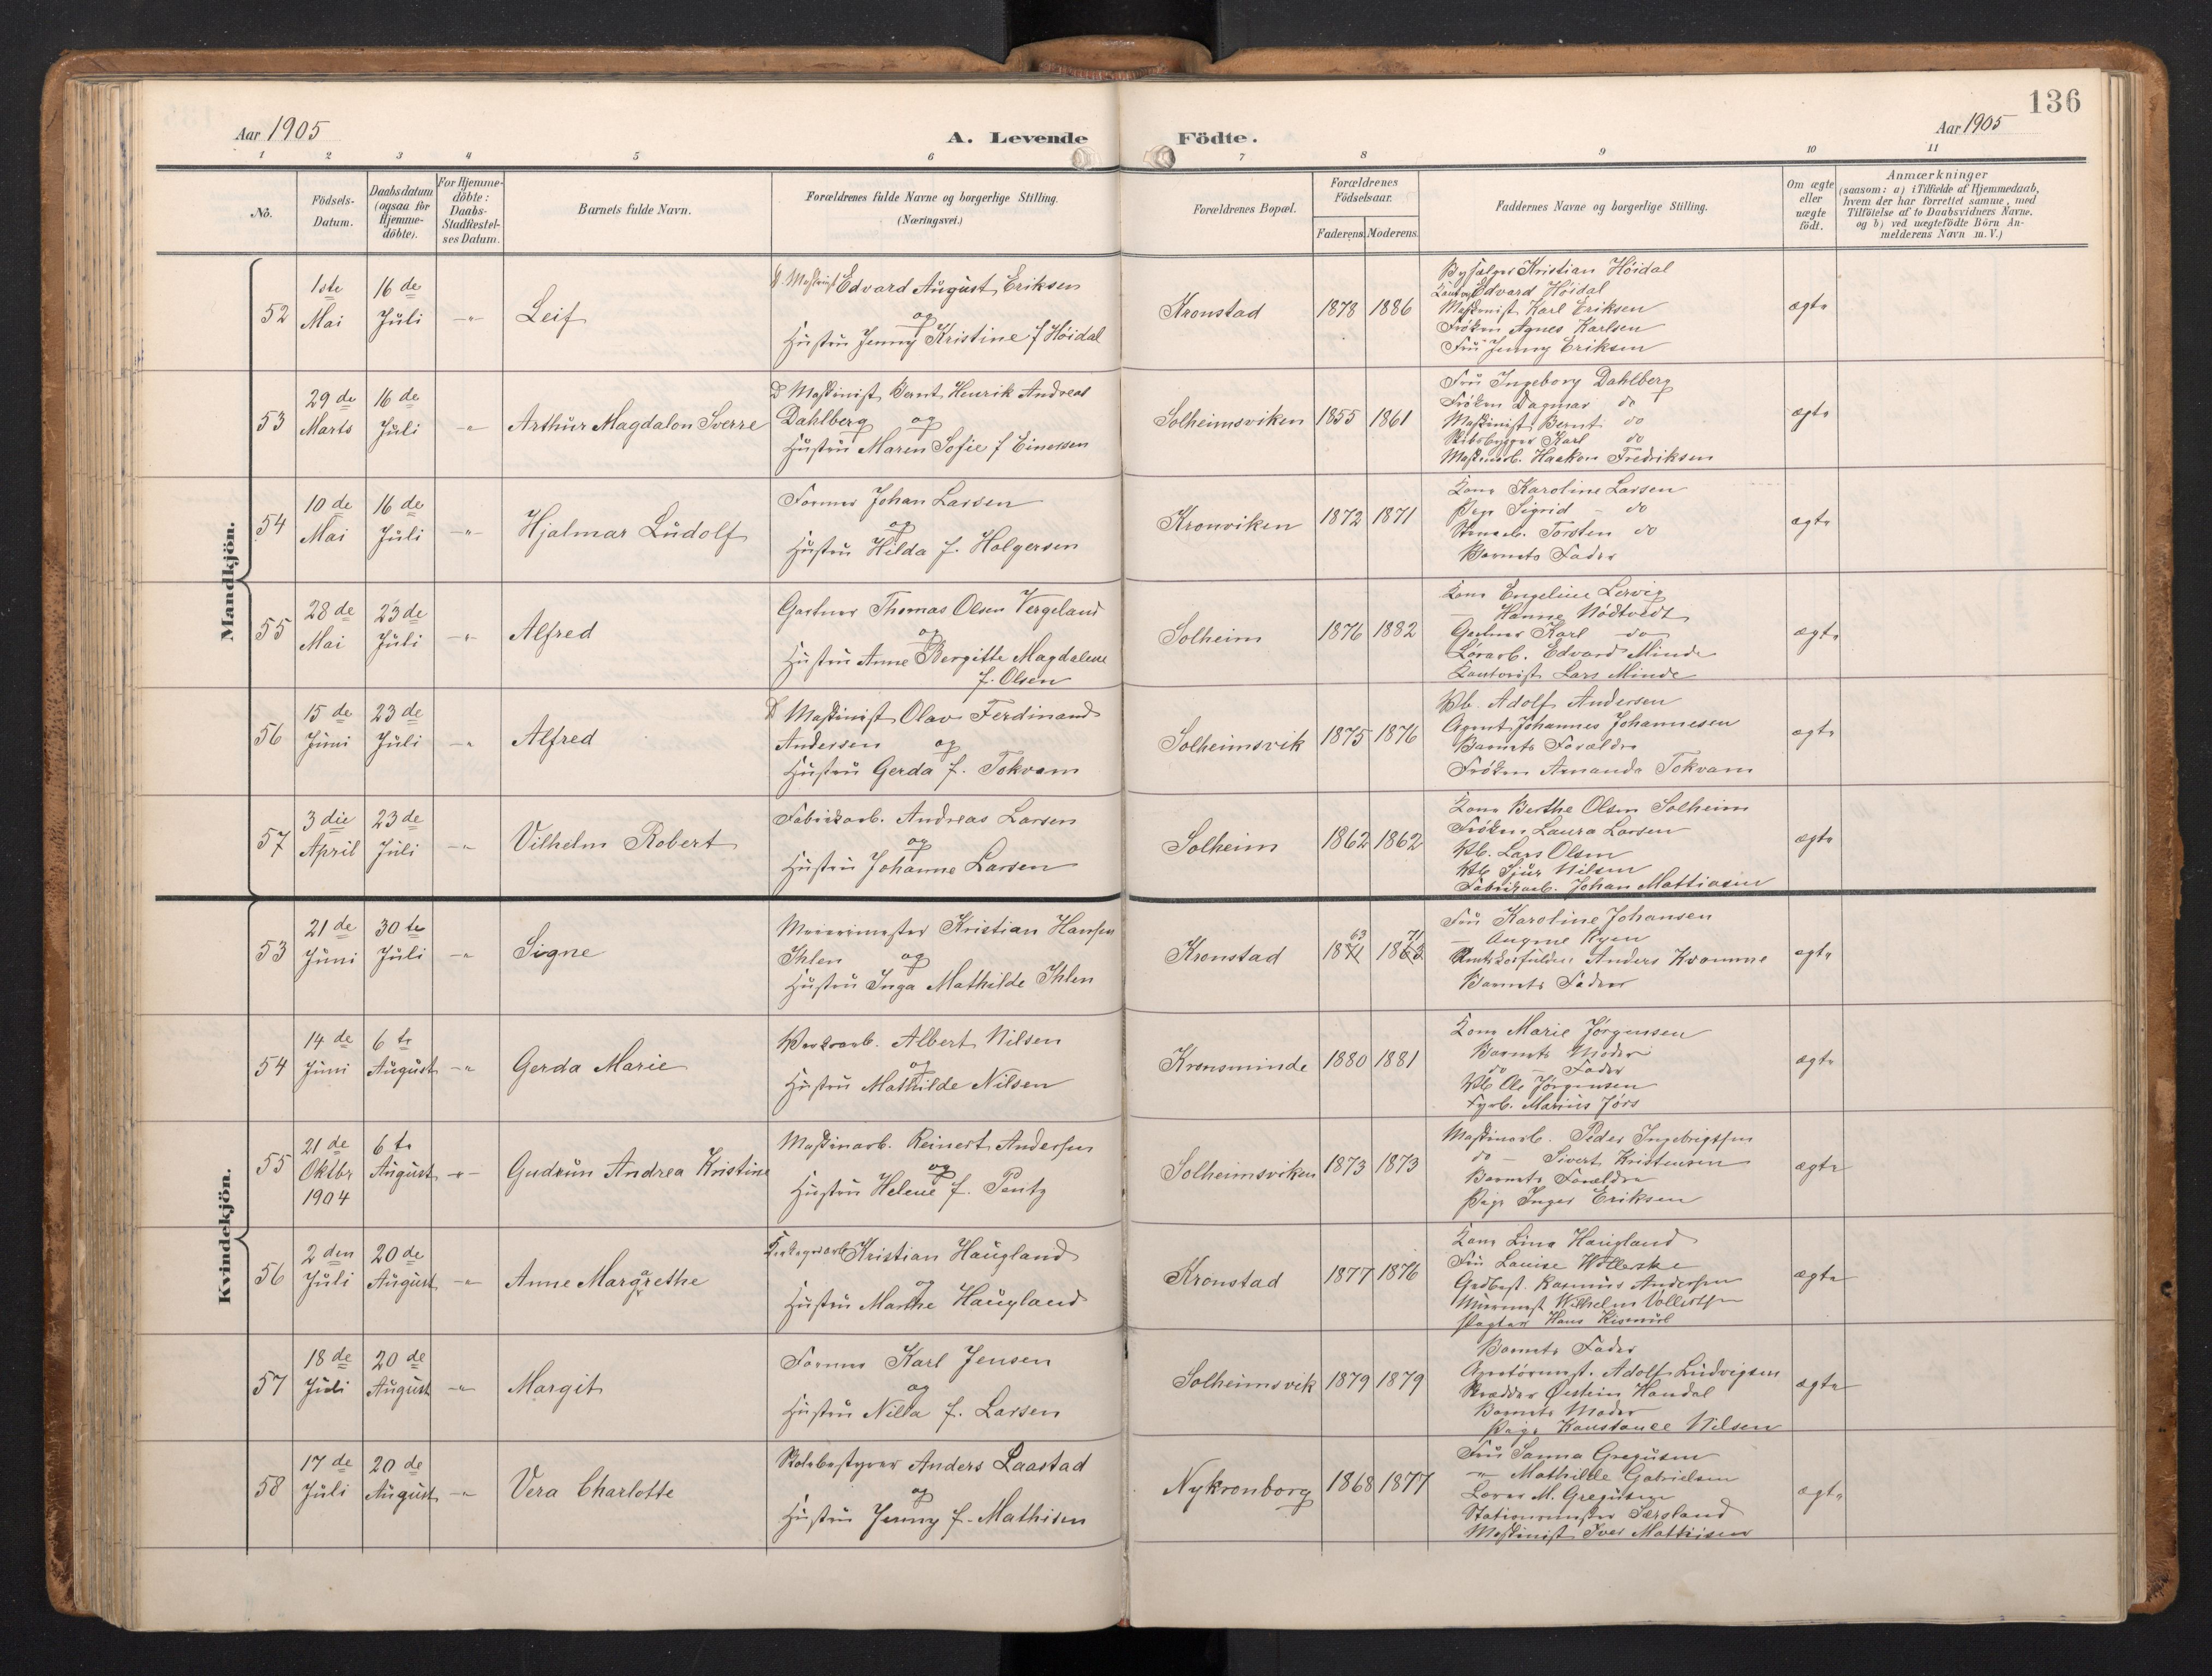 136
Aar 1905
A. Levende Födte.
Aar 1905
1 2 3 4 5 6 7 8 9 10 11
No.
Födsels-Datum.
Daabsdatum (ogsaa for Hjemme-döbte).
For Hjemme-döbte: Daabs-Stadfæstel-ses Datum.
Barnets fulde Navn.
Forældrenes fulde Navne og borgerlige Stilling.
(Næringsvei.)
Forældrenes Bopæl.
Forældrenes Födselsaar.
Faderens. Moderens.
Faddernes Navne og borgerlige Stilling.
Om ægte eller uægte födt.
Anmærkninger
(saasom: a) i Tilfælde af Hjemmedaab,
hvem der har forrettet samme, med
Tilföielse af to Daabsvidners Navne,
og b) ved uægtefödte Börn An-
melderens Navn m.V.)
Mandkjön.
52 1ste Mai 16de Juli -"- Leif
Edvard August Eriksen
og
Hustru Jenny Kristine f Höidal
Kronstad 1878 1886
Kristian Höidal
Edvard Höidal
Maskinist Karl Eriksen
Fröken Agnes Karlsen
Fru Jenny Eriksen
ægte
53 29de Marts 16de Juli -"- Arthur Magdalon Sverre
Maskinist Bernt Henrik Andreas
Dahlberg og
Hustru Maren Sofie f Einersen
Solheimsviken 1855 1861
Fru Ingeborg Dahlberg
Fröken Dagmar do
Maskinist Bernt do
Skibsbygger Karl do
Maskinarb. Haakon Fredriksen
ægte
54 10de Mai 16de Juli -"- Hjalmar Ludolf
Former Johan Larsen
og
Hustru Hilda f. Holgersen
Kronviken 1872 1871
Kone Karoline Larsen
Pige Sigrid - do
Torsten do
Barnets Fader
ægte
55 28de Mai 23de Juli -"- Alfred
Gartner Thomas Olsen Vergeland
og
Hustru Anne Bergitte Magdalene
f. Olsen
Solheim 1876 1882
Kone Engeline Lervig
- Hanne Nödtvedt
Gartner Karl do
Edvard Minde
Kontorist Lars Minde
ægte
56 15de Juni 23de Juli -"- Alfred
Maskinist Olav Ferdinand
Andersen og
Hustru Gerda f. Tokvam
Solheimsvik 1875 1876
Adolf Andersen
Agent Johannes Johannesen
Barnets Forældre
Fröken Amanda Tokvam
ægte
57 3die April 23de Juli -"- Vilhelm Robert
Fabrikarb. Andreas Larsen
og
Hustru Johanne Larsen
Solheim 1862 1862
Kone Berthe Olsen Solheim
Fröken Laura Larsen
Lars Olsen
Sjur Nilsen
Fabrikarb. Johan Mattiasen
ægte
Kvindekjön.
53 21de Juni 30te Juli -"- Signe
Meierimester Kristian Hansen
Ihlen og
Hustru Inga Mathilde Ihlen
Kronstad 1871 63 1863 71
Fru Karoline Johansen
Anders Kvamme
Barnets Fader
ægte
54 14de Juni 6te August -"- Gerda Marie
Albert Nilsen
og
Hustru Mathilde Nilsen
Kronsminde 1880 1881
Kone Marie Jörgensen
Barnets Moder
do - Fader
Ole Jörgensen
Fyrb. Marius Jörs
ægte
55 21de Oktbr 1904 6te August -"- Gudrun Andrea Kristine
Maskinarb. Reinert Andersen
og
Hustru Helene f. Pentz
Solheimsviken 1873 1873
Maskinarb. Peder Ingebrigtsen
do - Sivert Kristensen
Barnets Forældre
Pige Inger Eriksen
ægte
56 2den Juli 20de August -"- Anne Margrethe
Kristian Haugland
og
Hustru Marthe Haugland
Kronstad 1877 1876
Kone Lina Haugland
Fru Louise
Rasmus Andersen
Wilhelm
Hans
ægte
57 18de Juli 20de August -"- Margit
Former Karl Jensen
og
Hustru Nilla f. Larsen
Solheimsvik 1879 1879
Barnets Fader
Adolf Ludvigsen
Skrædder Öistein Handal
Barnets Moder
Pige Konstance Nilsen
ægte
58 17de Juli 20de August -"- Vera Charlotte
Skolebestyrer Anders Laastad
og
Hustru Jenny f. Mathisen
Nykronborg 1868 1877
Fru Sanna Gregusen
-"- Mathilde Gabrielsen
Lærer M. Gregusen
Stationsmester Færsland
Maskinist Iver Mathisen
ægte